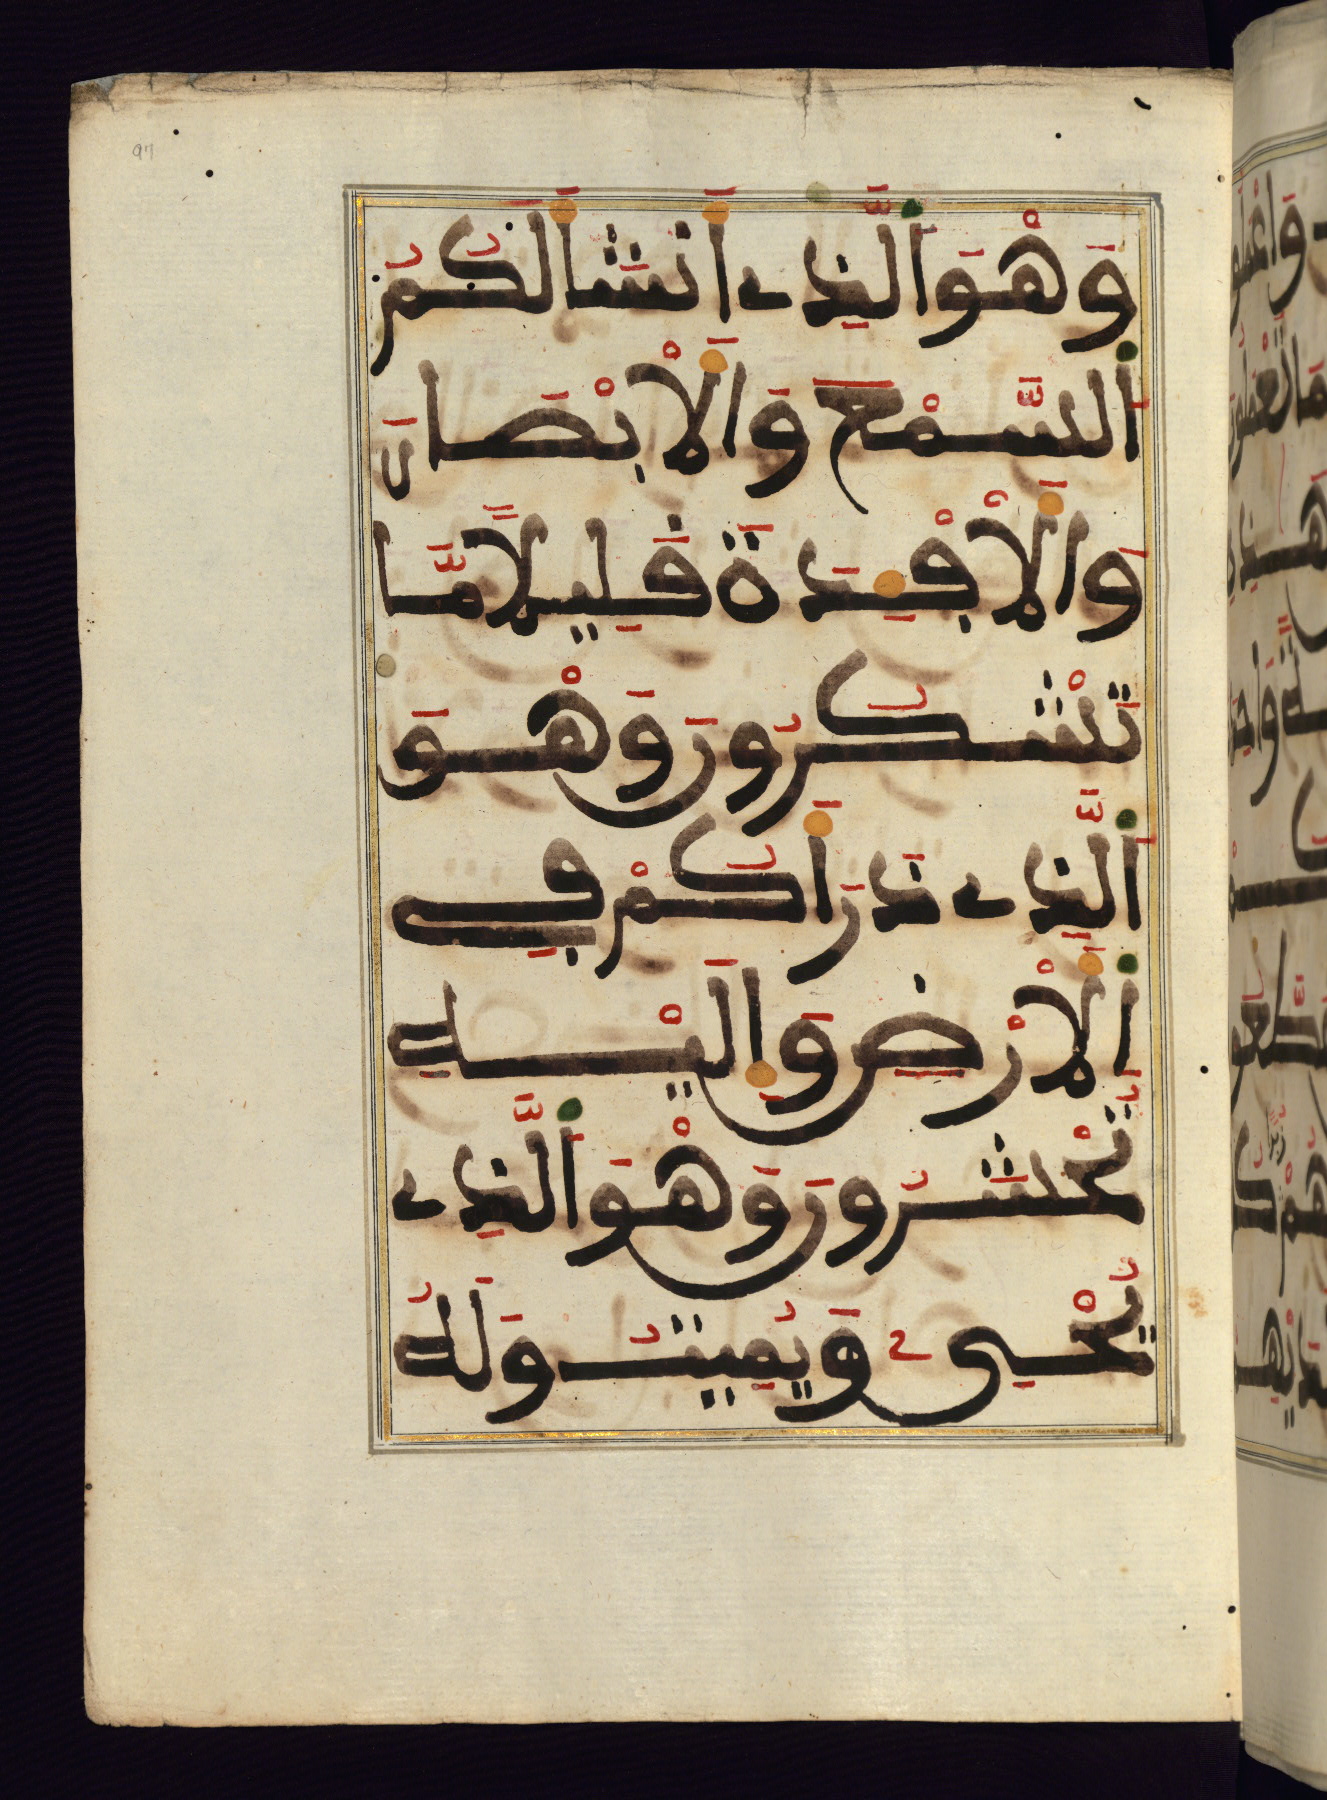 97
وَهْوَ اَلَّذِے أَنشَأَ لَكُمُ
اُلسَّمْعَ وَالْأَبْصَارَ
وَالْأَفْئِدَةَ قَلِيلاً مَّا
تَشْكُرُونَ وَهْوَ
اَلَّذِے ذَرَأَكُمْ فِي
اِلْأَرْضِ وَإِلَيْهِ
تُحْشَرُونَ وَهْوَ اَلَّذِے
يُحْيِي وَيُمِيتُ وَلَهُ